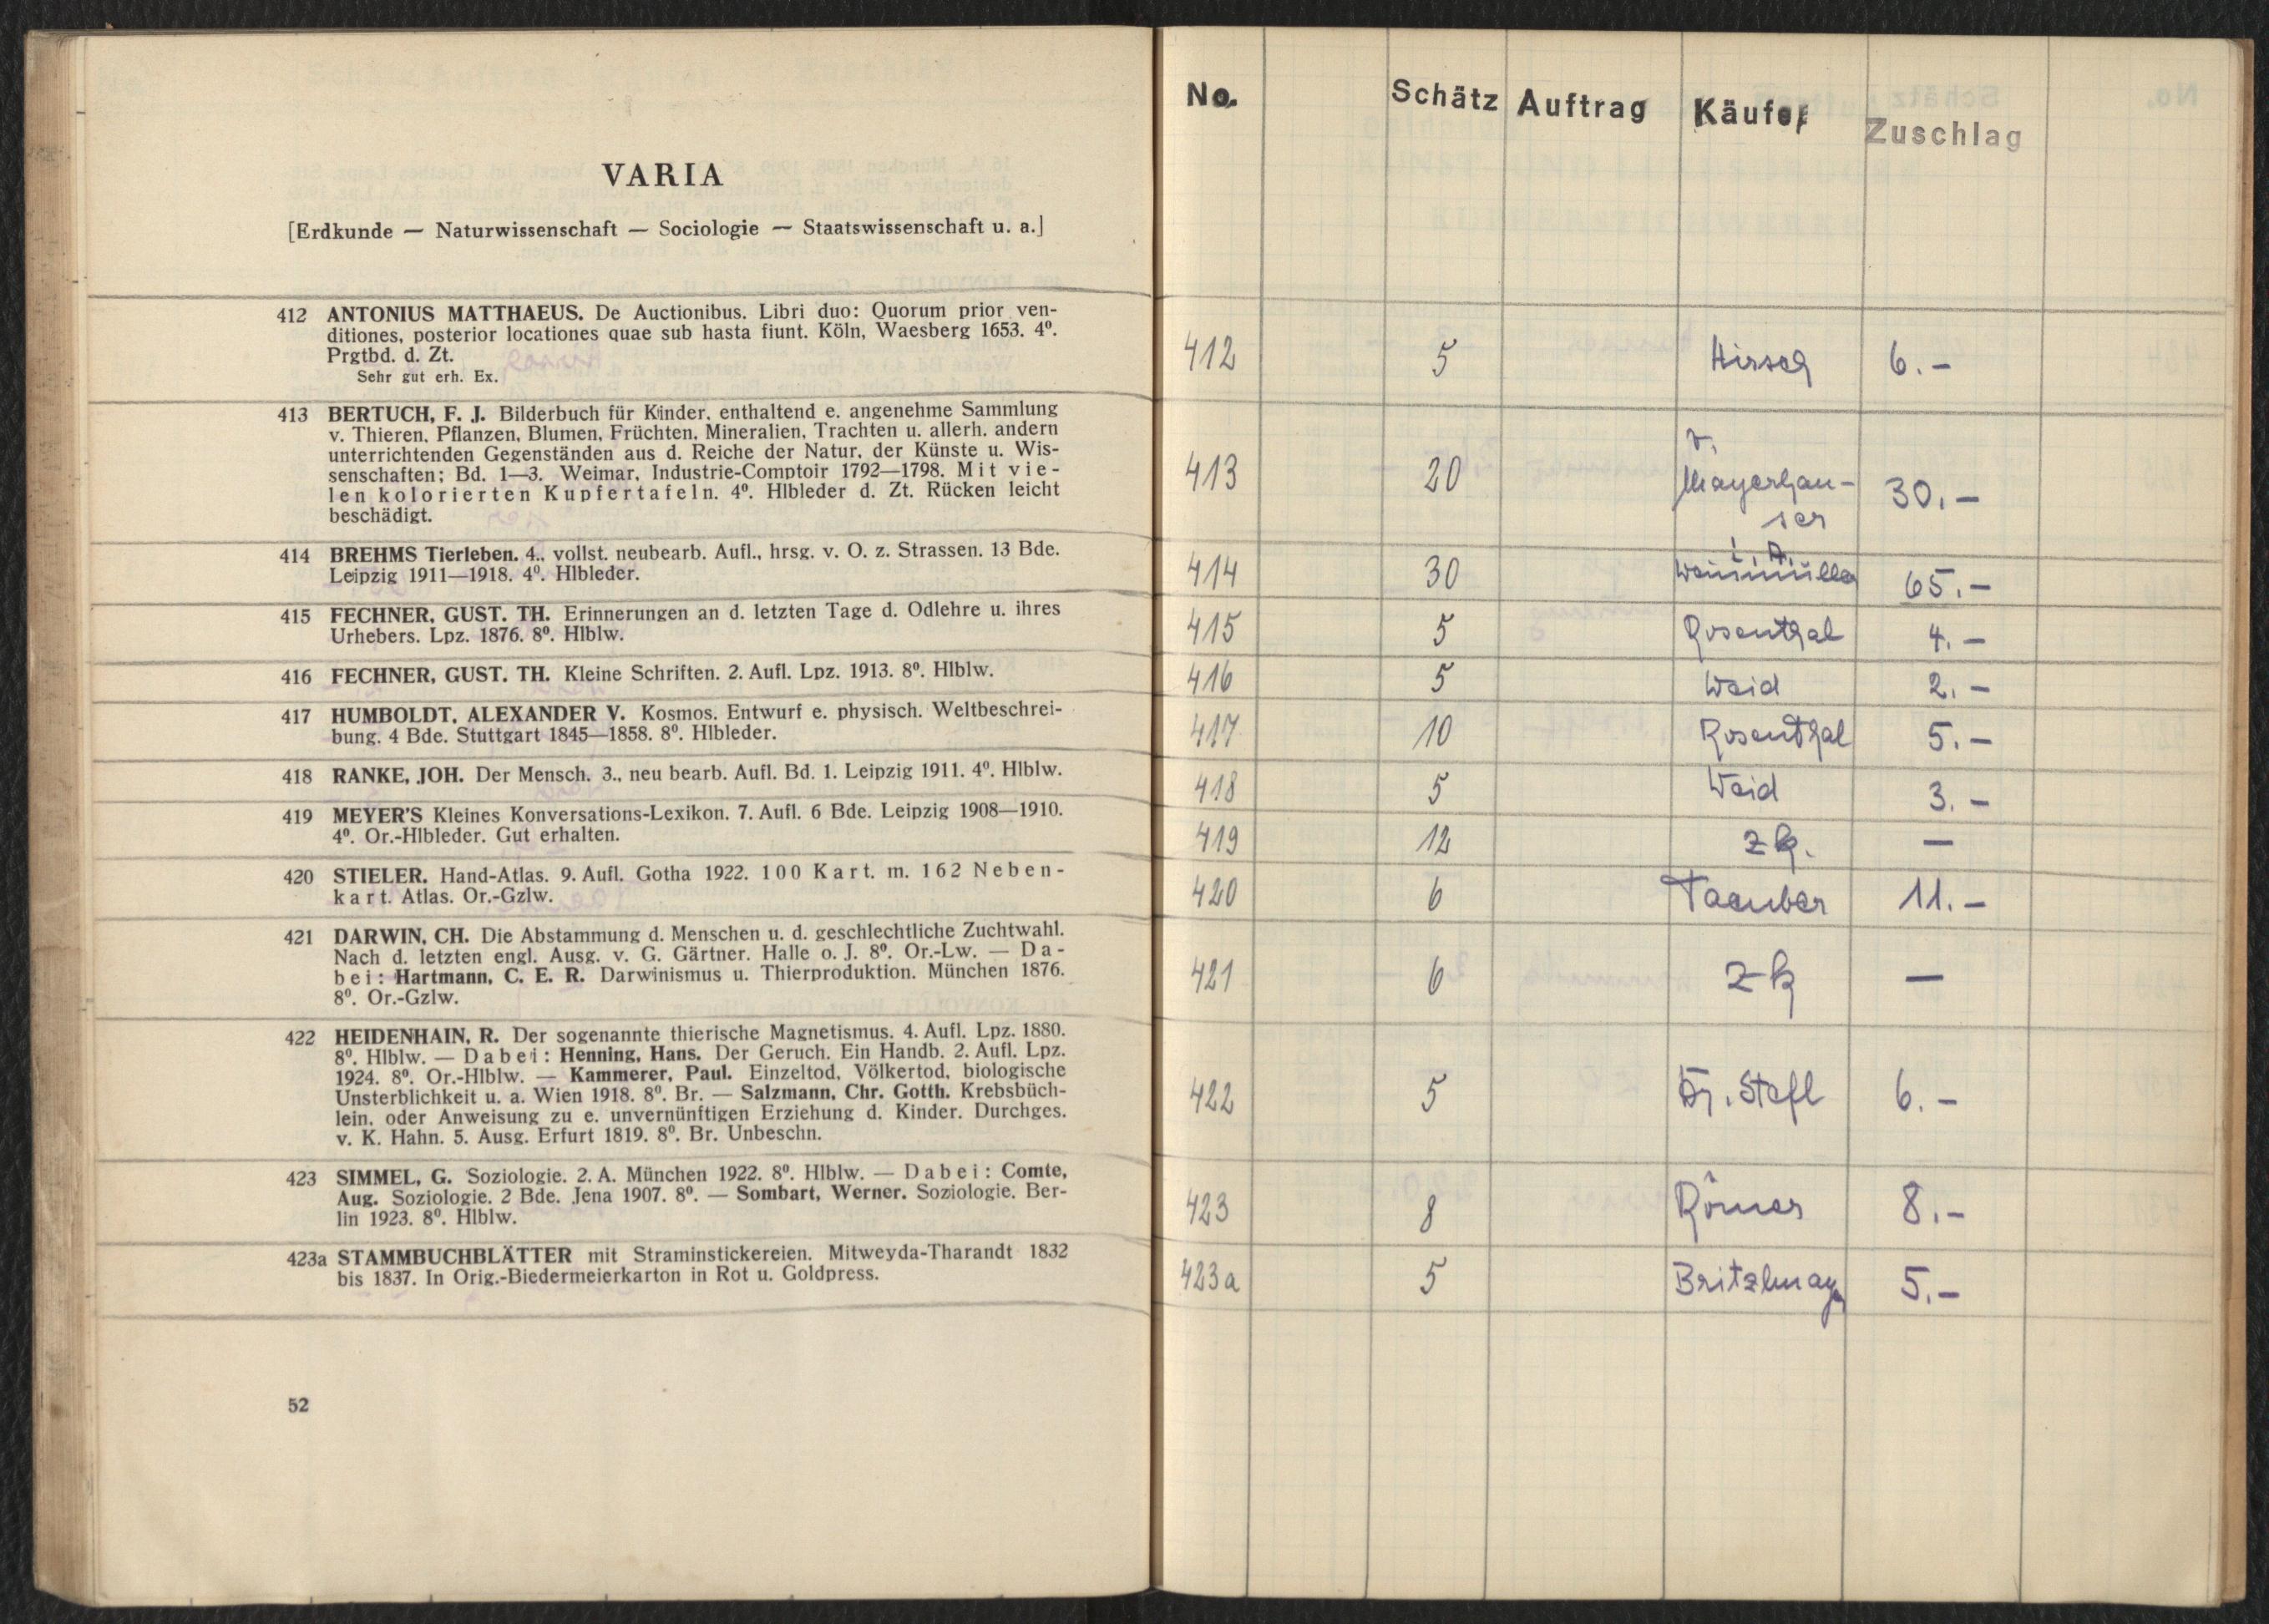 VARIA
[Erdkunde — Naturwissenschaft — Sociologie — Staatswissenschaft u. a.]
412 ANTONIUS MATTHAEUS. De Auctionibus. Libri duo: Quorum prior ven-
ditiones, posterior locationes quae sub hasta fiunt. Köln, Waesberg 1653. 4⁰.
Prgtbd. d. Zt.
Sehr gut erh. Ex.
413 BERTUCH, F. J. Bilderbuch für Kinder, enthaltend e. angenehme Sammlung
v. Thieren, Pflanzen, Blumen, Früchten, Mineralien, Trachten u. allerh. andern
unterrichtenden Gegenständen aus d. Reiche der Natur, der Künste u. Wis-
senschaften; Bd. 1—3. Weimar, Industrie-Comptoir 1792—1798. Mit vie-
len kolorierten Kupfertafeln. 4⁰. Hlbleder d. Zt. Rücken leicht
beschädigt.
414 BREHMS Tierleben. 4., vollst. neubearb. Aufl., hrsg. v. O. z. Strassen. 13 Bde.
Leipzig 1911—1918. 4⁰. Hlbleder.
415 FECHNER, GUST. TH. Erinnerungen an d. letzten Tage d. Odlehre u. ihres
Urhebers. Lpz. 1876. 8⁰. Hlblw.
416 FECHNER, GUST. TH. Kleine Schriften. 2. Aufl. Lpz. 1913. 8⁰. Hlblw.
417 HUMBOLDT, ALEXANDER V. Kosmos. Entwurf e. physisch. Weltbeschrei-
bung. 4 Bde. Stuttgart 1845—1858. 8⁰. Hlbleder.
418 RANKE, JOH. Der Mensch. 3., neu bearb. Aufl. Bd. 1. Leipzig 1911. 4⁰. Hlblw.
419 MEYER'S Kleines Konversations-Lexikon. 7. Aufl. 6 Bde. Leipzig 1908—1910.
4⁰. Or.-Hlbleder. Gut erhalten.
420 STIELER. Hand-Atlas. 9. Aufl. Gotha 1922. 100 Kart. m. 162 Neben-
kart. Atlas. Or.-Gzlw.
421 DARWIN, CH. Die Abstammung d. Menschen u. d. geschlechtliche Zuchtwahl.
Nach d. letzten engl. Ausg. v. G. Gärtner. Halle o. J. 8⁰. Or.-Lw. — Da-
bei: Hartmann, C. E. R. Darwinismus u. Thierproduktion. München 1876.
8⁰. Or.-Gzlw.
422 HEIDENHAIN, R. Der sogenannte thierische Magnetismus. 4. Aufl. Lpz. 1880.
8⁰. Hlblw. — Dabei: Henning, Hans. Der Geruch. Ein Handb. 2. Aufl. Lpz.
1924. 8⁰. Or.-Hlblw. — Kammerer, Paul. Einzeltod, Völkertod, biologische
Unsterblichkeit u. a. Wien 1918. 8⁰. Br. — Salzmann, Chr. Gotth. Krebsbüch-
lein, oder Anweisung zu e. unvernünftigen Erziehung d. Kinder. Durchges.
v. K. Hahn. 5. Ausg. Erfurt 1819. 8⁰. Br. Unbeschn.
423 SIMMEL, G. Soziologie. 2. A. München 1922. 8⁰. Hlblw. — Dabei: Comte,
Aug. Soziologie. 2 Bde. Jena 1907. 8⁰. — Sombart, Werner. Soziologie. Ber-
lin 1923. 8⁰. Hlblw.
423a STAMMBUCHBLÄTTER mit Straminstickereien. Mitweyda-Tharandt 1832
bis 1837. In Orig.-Biedermeierkarton in Rot u. Goldpress.
52
No. Schätz Auftrag Käufer Zuschlag
412 5 Hirsch 6.–
413 20 v. Mayerhau-
ser 30.–
414 30 i. A. Weinmüller 65.–
415 5 Rosenthal 4.–
416 5 Weid 2.–
417 10 Rosenthal 5.–
418 5 Weid 3.–
419 12 zk. –
420 6 Taeuber 11.–
421 6 zk –
422 5 Dr. Stefl 6.–
423 8 Römer 8.–
423a 5 Britzlmayr 5.–